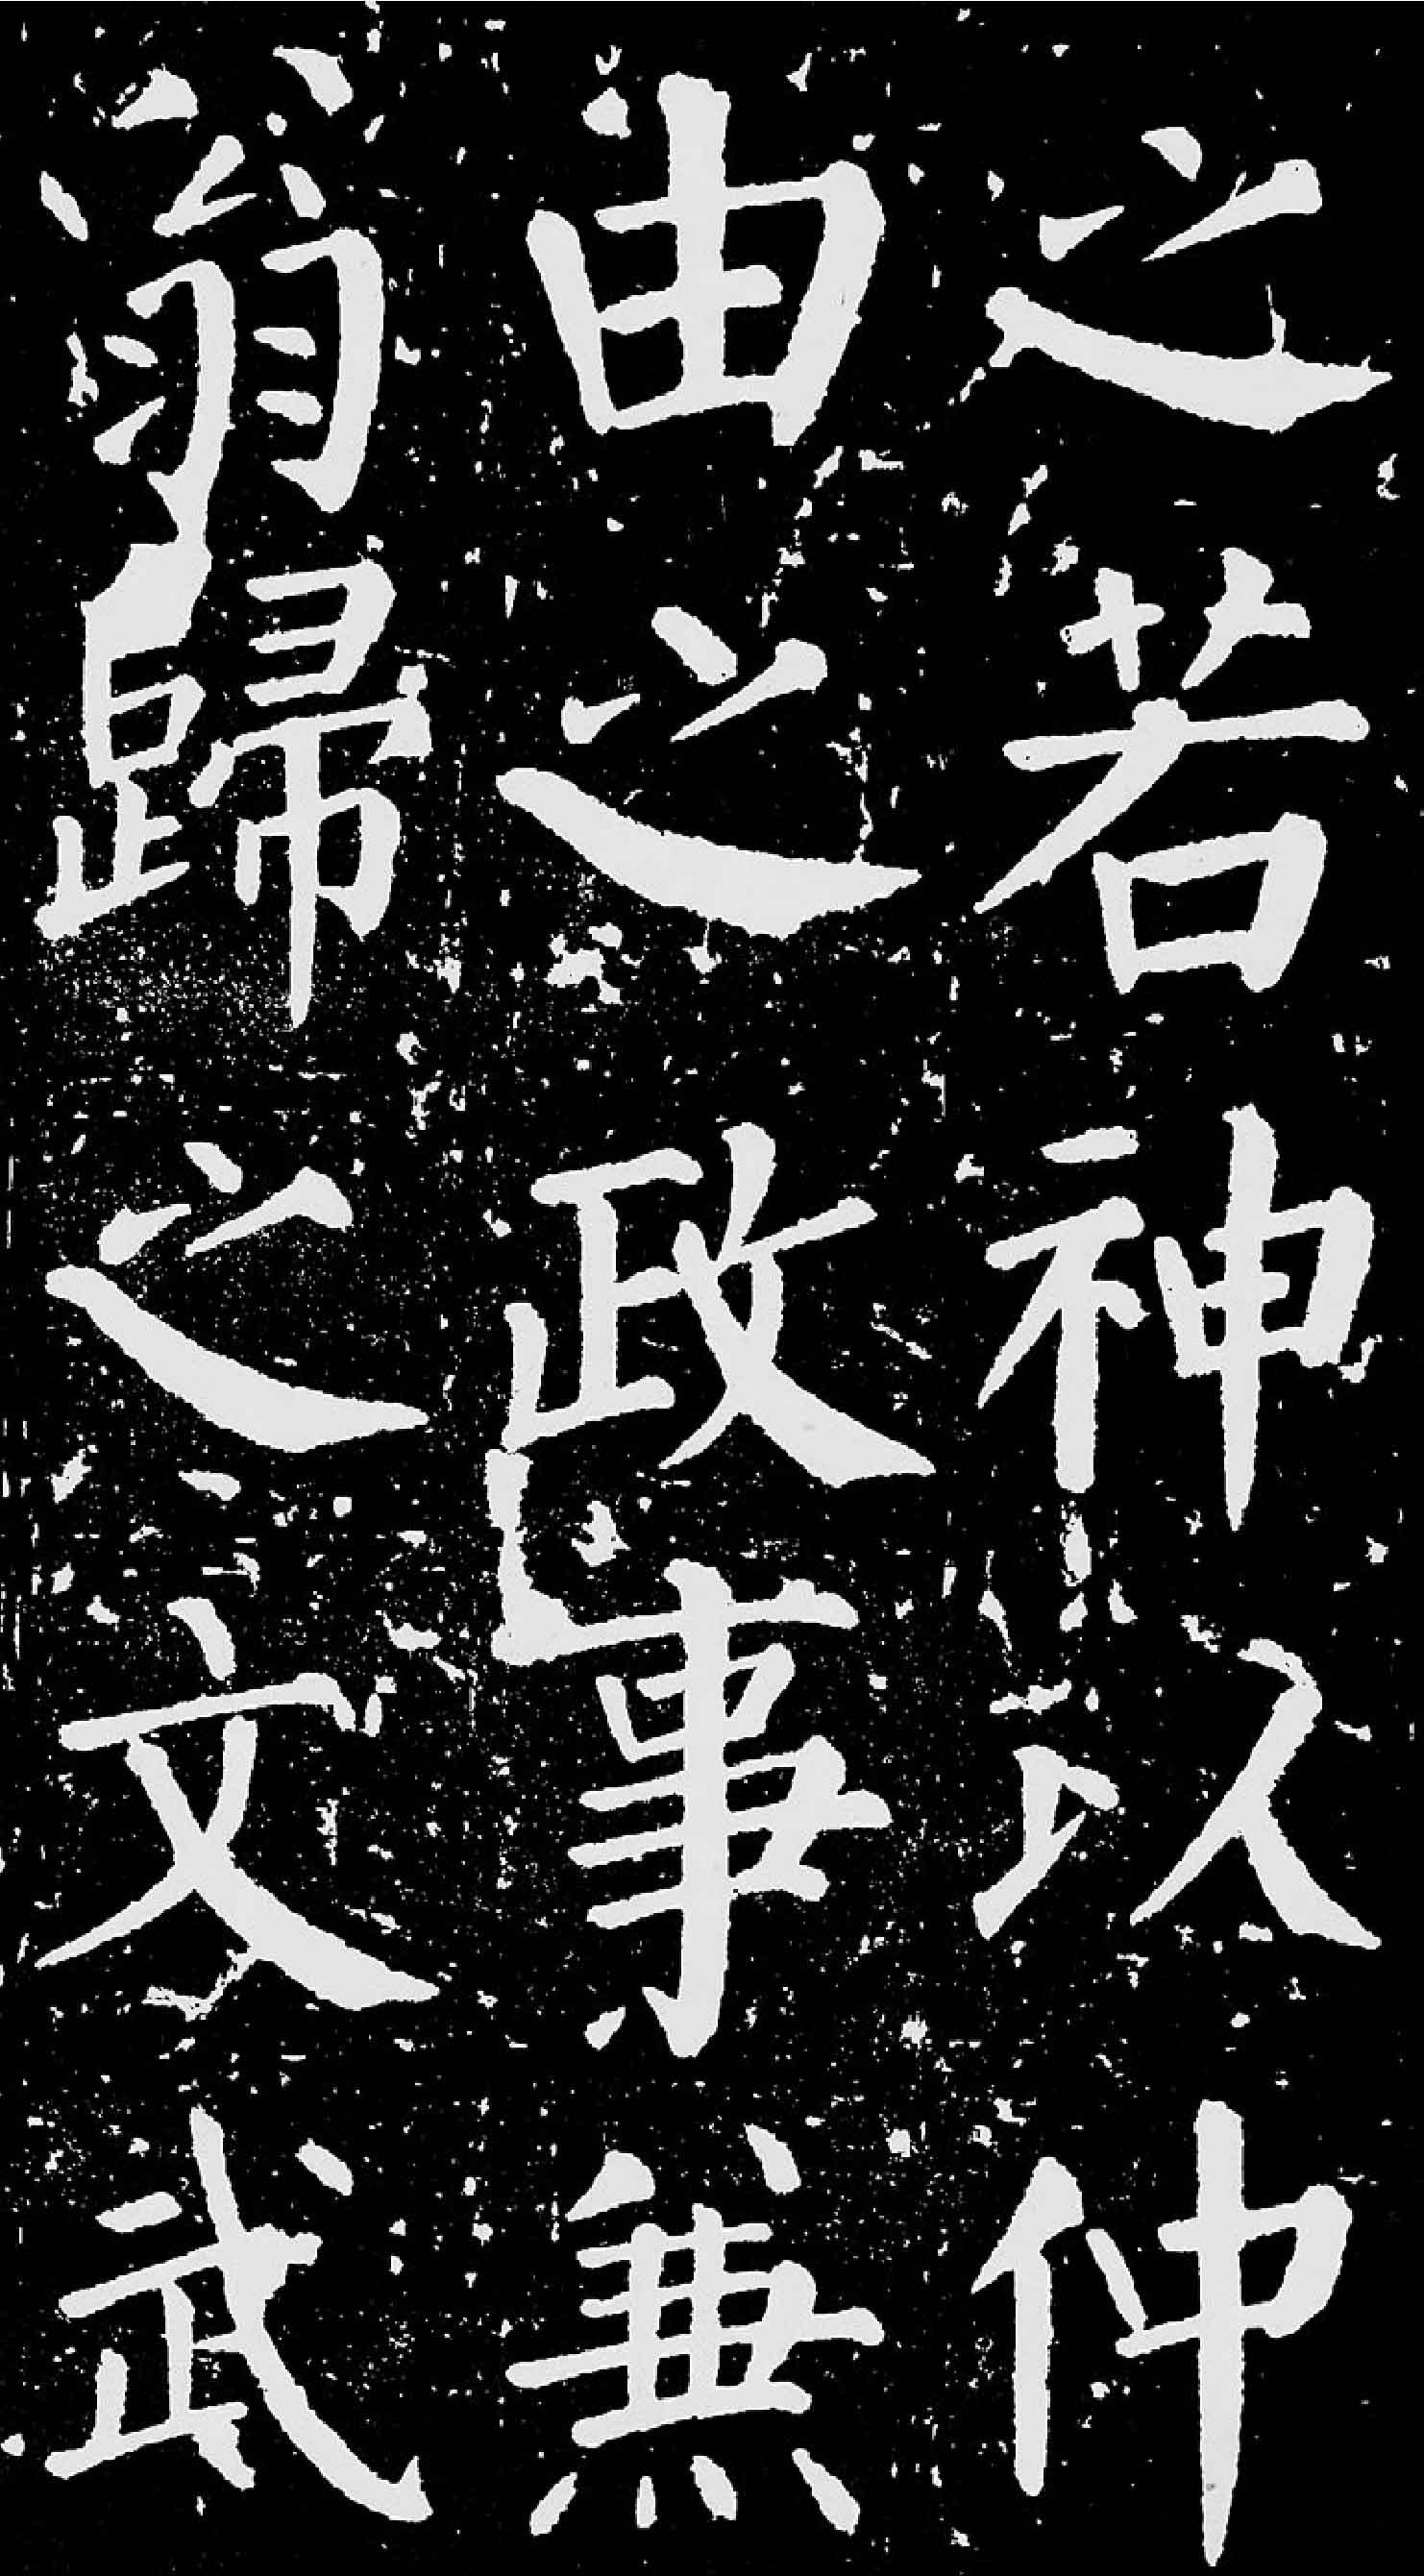 之若神以仲
由之政事兼
翁歸之文武